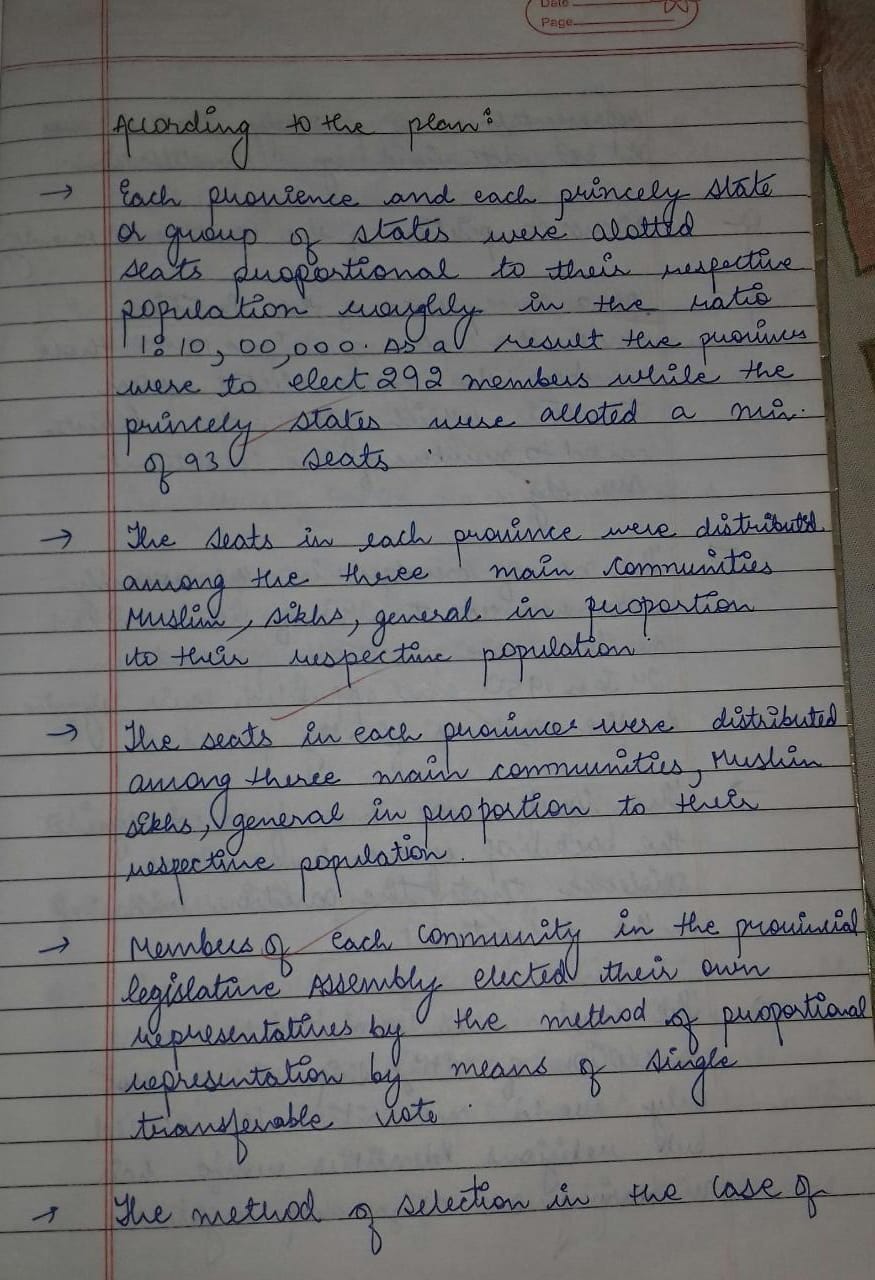 Date
Page
According to the plan:
→ Each provience and each princely state
or group of states were alotted
seats proportional to their respective
population roughly in the ratio
1:10,00,000. As a result the provinces
were to elect 292 members while the
princely states were alloted a min.
of 93 seats.
→ The seats in each province were distributed
among the three main communities
Muslim, sikhs, general in proportion
to their respective population.
→ The seats in each province were distributed
among three main communities, Muslim
sikhs, general in proportion to their
respective population.
→ Members of each community in the provincial
legislative Assembly elected their own
representatives by the method of proportional
representation by means of single
transferable vote.
→ The method of selection in the case of